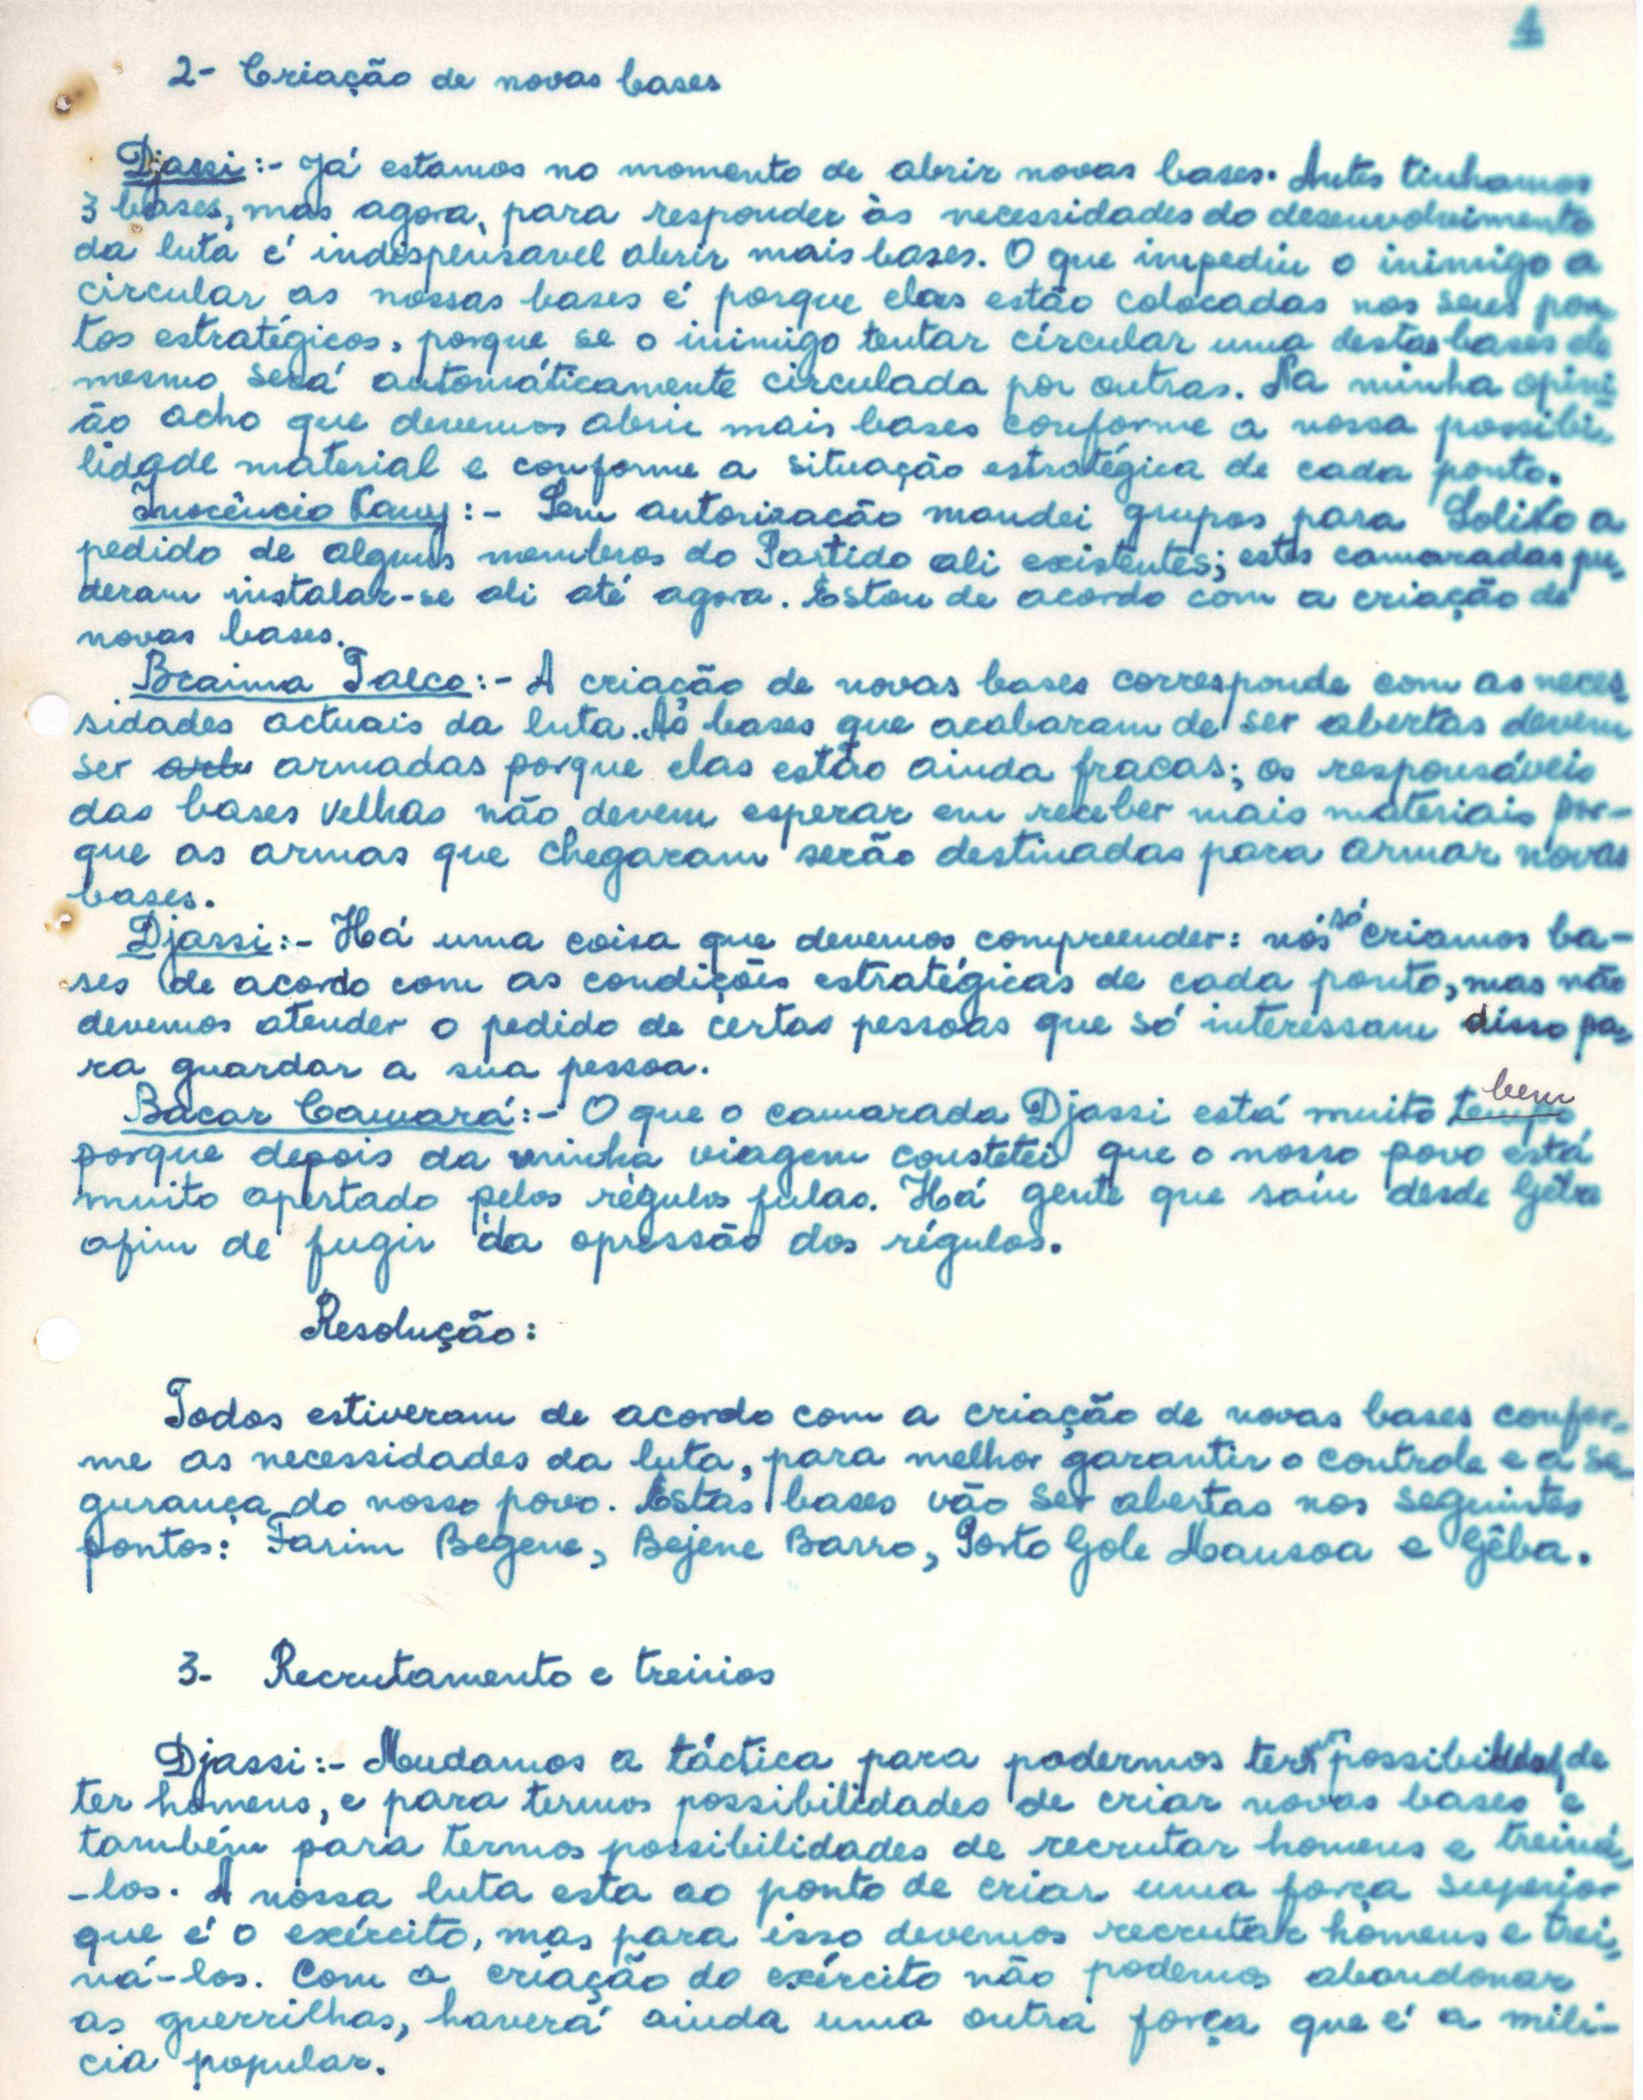 4
2- Criação de novas bases
Djassi:- Já estamos no momento de abrir novas bases. Antes tinhamos
3 bases, mas agora, para responder às necessidades do desenvolvimento
da luta é indispensavel abrir mais bases. O que impediu o inimigo a
circular as nossas bases é porque elas estão colocadas nos seus pon-
tos estratégicos, porque se o inimigo tentar circular uma destas bases ele
mesmo será automáticamente circulada por outras. Na minha opini-
ão acho que devemos abrir mais bases conforme a nossa possibi-
lidade material e conforme a situação estratégica de cada ponto.
Inocêncio Kany:- Sem autorização mandei grupos para Solito a
pedido de alguns membros do Partido ali existentes; estes camaradas pu-
deram instalar-se ali até agora. Estou de acordo com a criação de
novas bases.
Braima Talco:- A criação de novas bases corresponde com as neces
sidades actuais da luta. As bases que acabaram de ser abertas devem
ser armadas porque elas estão ainda fracas; os responsáveis
das bases velhas não devem esperar em receber mais materiais por-
que as armas que chegaram serão destinadas para armar novas
bases.
Djassi:- Há uma coisa que devemos compreender: nós só criamos ba-
ses de acordo com as condições estratégicas de cada ponto, mas não
devemos atender o pedido de certas pessoas que só interessam disso pa-
ra guardar a sua pessoa.
Bacar Camará:- O que o camarada Djassi está muito bem
porque depois da minha viagem constetei que o nosso povo está
muito apertado pelos régulos fulas. Há gente que saiu desde Gêba
afim de fugir da opressão dos régulos.
Resolução:
Todos estiveram de acordo com a criação de novas bases confor-
me as necessidades da luta, para melhor garantir o controle e a se-
gurança do nosso povo. Estas bases vão ser abertas nos seguintes
pontos: Farim Begene, Bejene Barro, Porto Gole Mansoa e Gêba.
3- Recrutamento e treinos
Djassi:- Mudamos a táctica para podermos ter possibilidad, de
ter homens, e para termos possibilidades de criar novas bases e
também para termos possibilidades de recrutar homens e treiná-
-los. A nossa luta esta ao ponto de criar uma força superior
que é o exército, mas para isso devemos recrutar homens e trei-
ná-los. Com a criação do exército não podemos abandonar
as guerrilhas, haverá ainda uma outra força que é a milí-
cia popular.